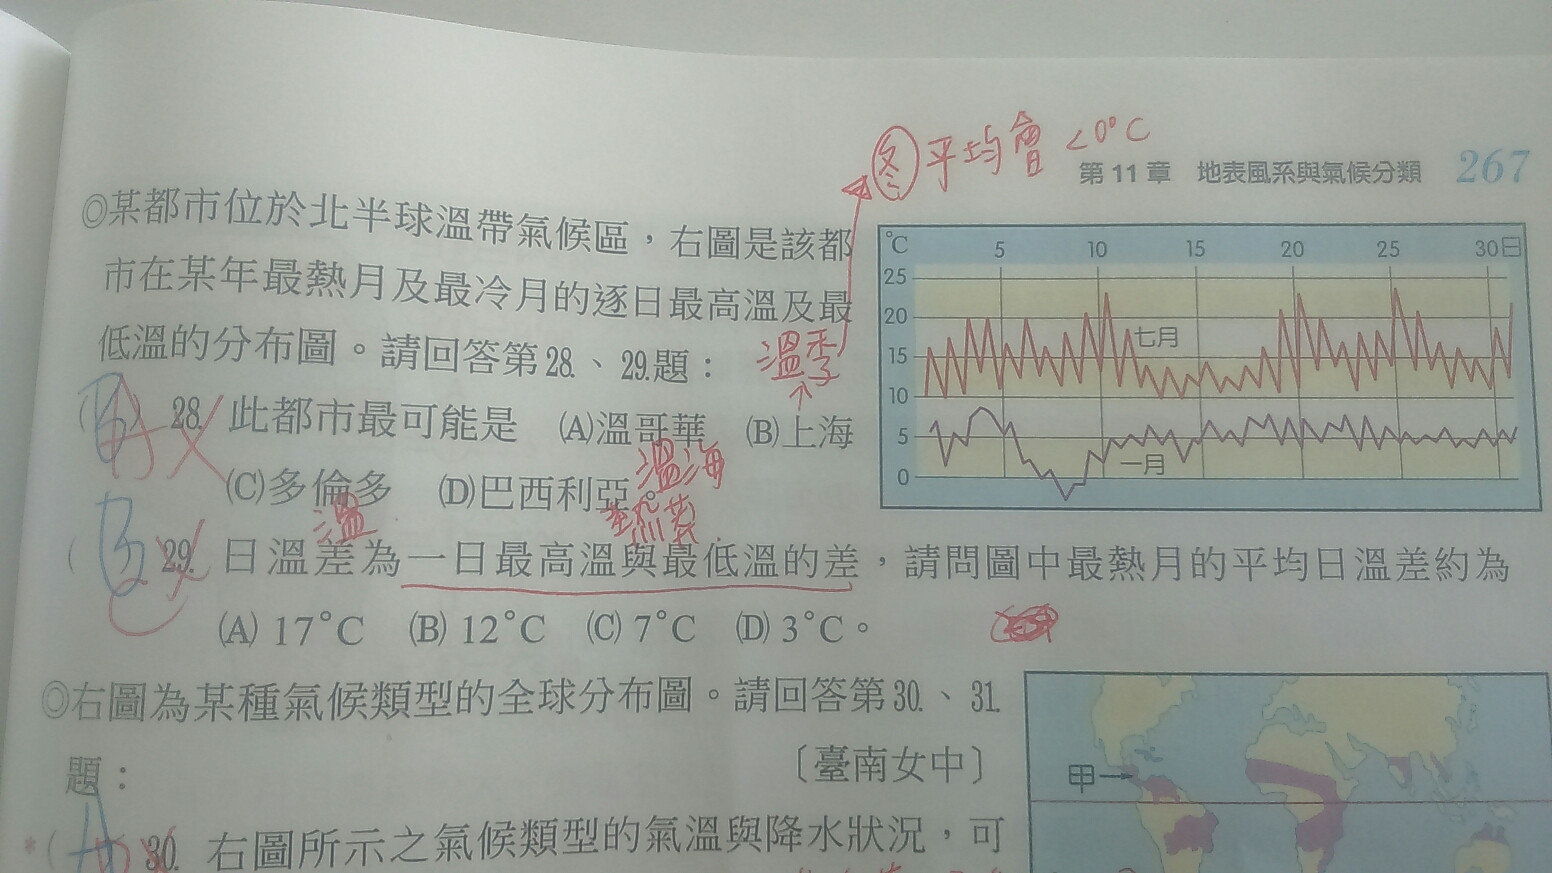 冬 平均會 <0°C
第11章 地表風系與氣候分類 267
◎某都市位於北半球溫帶氣候區，右圖是該都
市在某年最熱月及最冷月的逐日最高溫及最
低溫的分布圖。請回答第28.、29.題：
溫季
28. 此都市最可能是 (A)溫哥華 (B)上海
溫海
(C)多倫多 (D)巴西利亞。
溫
熱莽
29. 日溫差為一日最高溫與最低溫的差，請問圖中最熱月的平均日溫差約為
(A) 17°C (B) 12°C (C) 7°C (D) 3°C。
℃ 5 10 15 20 25 30日
25
20
15
10
5
0
七月
一月
◎右圖為某種氣候類型的全球分布圖。請回答第30.、31.
題：
〔臺南女中〕
甲
*( 30. 右圖所示之氣候類型的氣溫與降水狀況，可